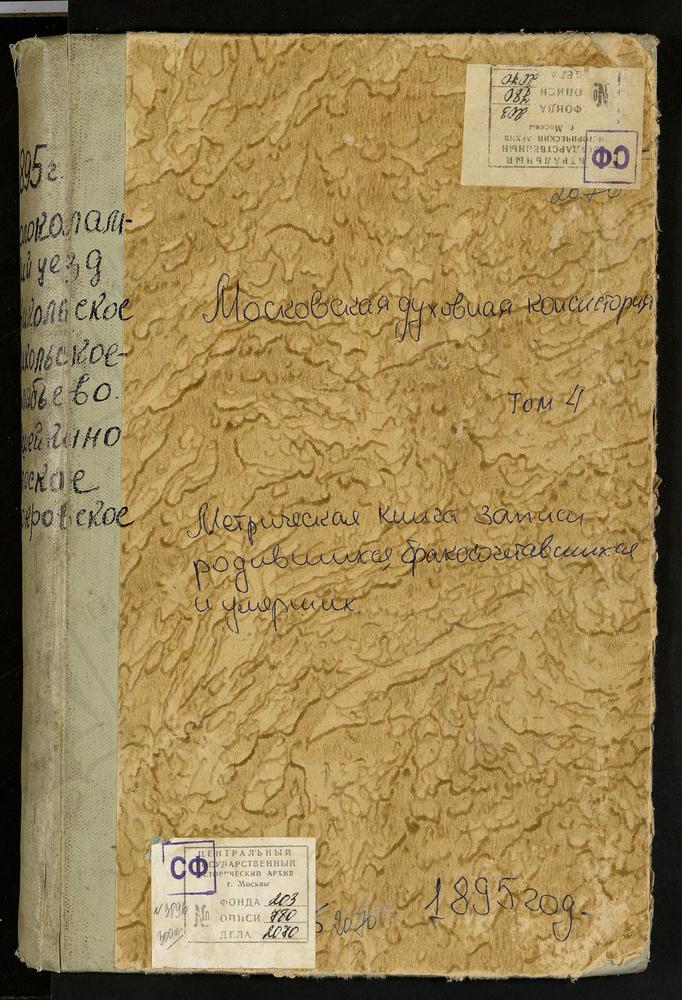 895 г.
олоколам-
ий уезд
икольское
икольское-
ево.
ино
ское
кровское
СФ
ЦЕНТРАЛЬНЫЙ
ГОСУДАРСТВЕННЫЙ
ИСТОРИЧЕСКИЙ АРХИВ
г. Москвы
ФОНДА 203
№ ОПИСИ 780
ДЕЛА 2070
2070
Московская духовная консистория
Том 4
Метрическая книга записи
родившихся, бракосочетавшихся
и умерших.
1895 год.
СФ
ЦЕНТРАЛЬНЫЙ
ГОСУДАРСТВЕННЫЙ
ИСТОРИЧЕСКИЙ АРХИВ
г. Москвы
ФОНДА 203
№ ОПИСИ 780
ДЕЛА 2070
2070